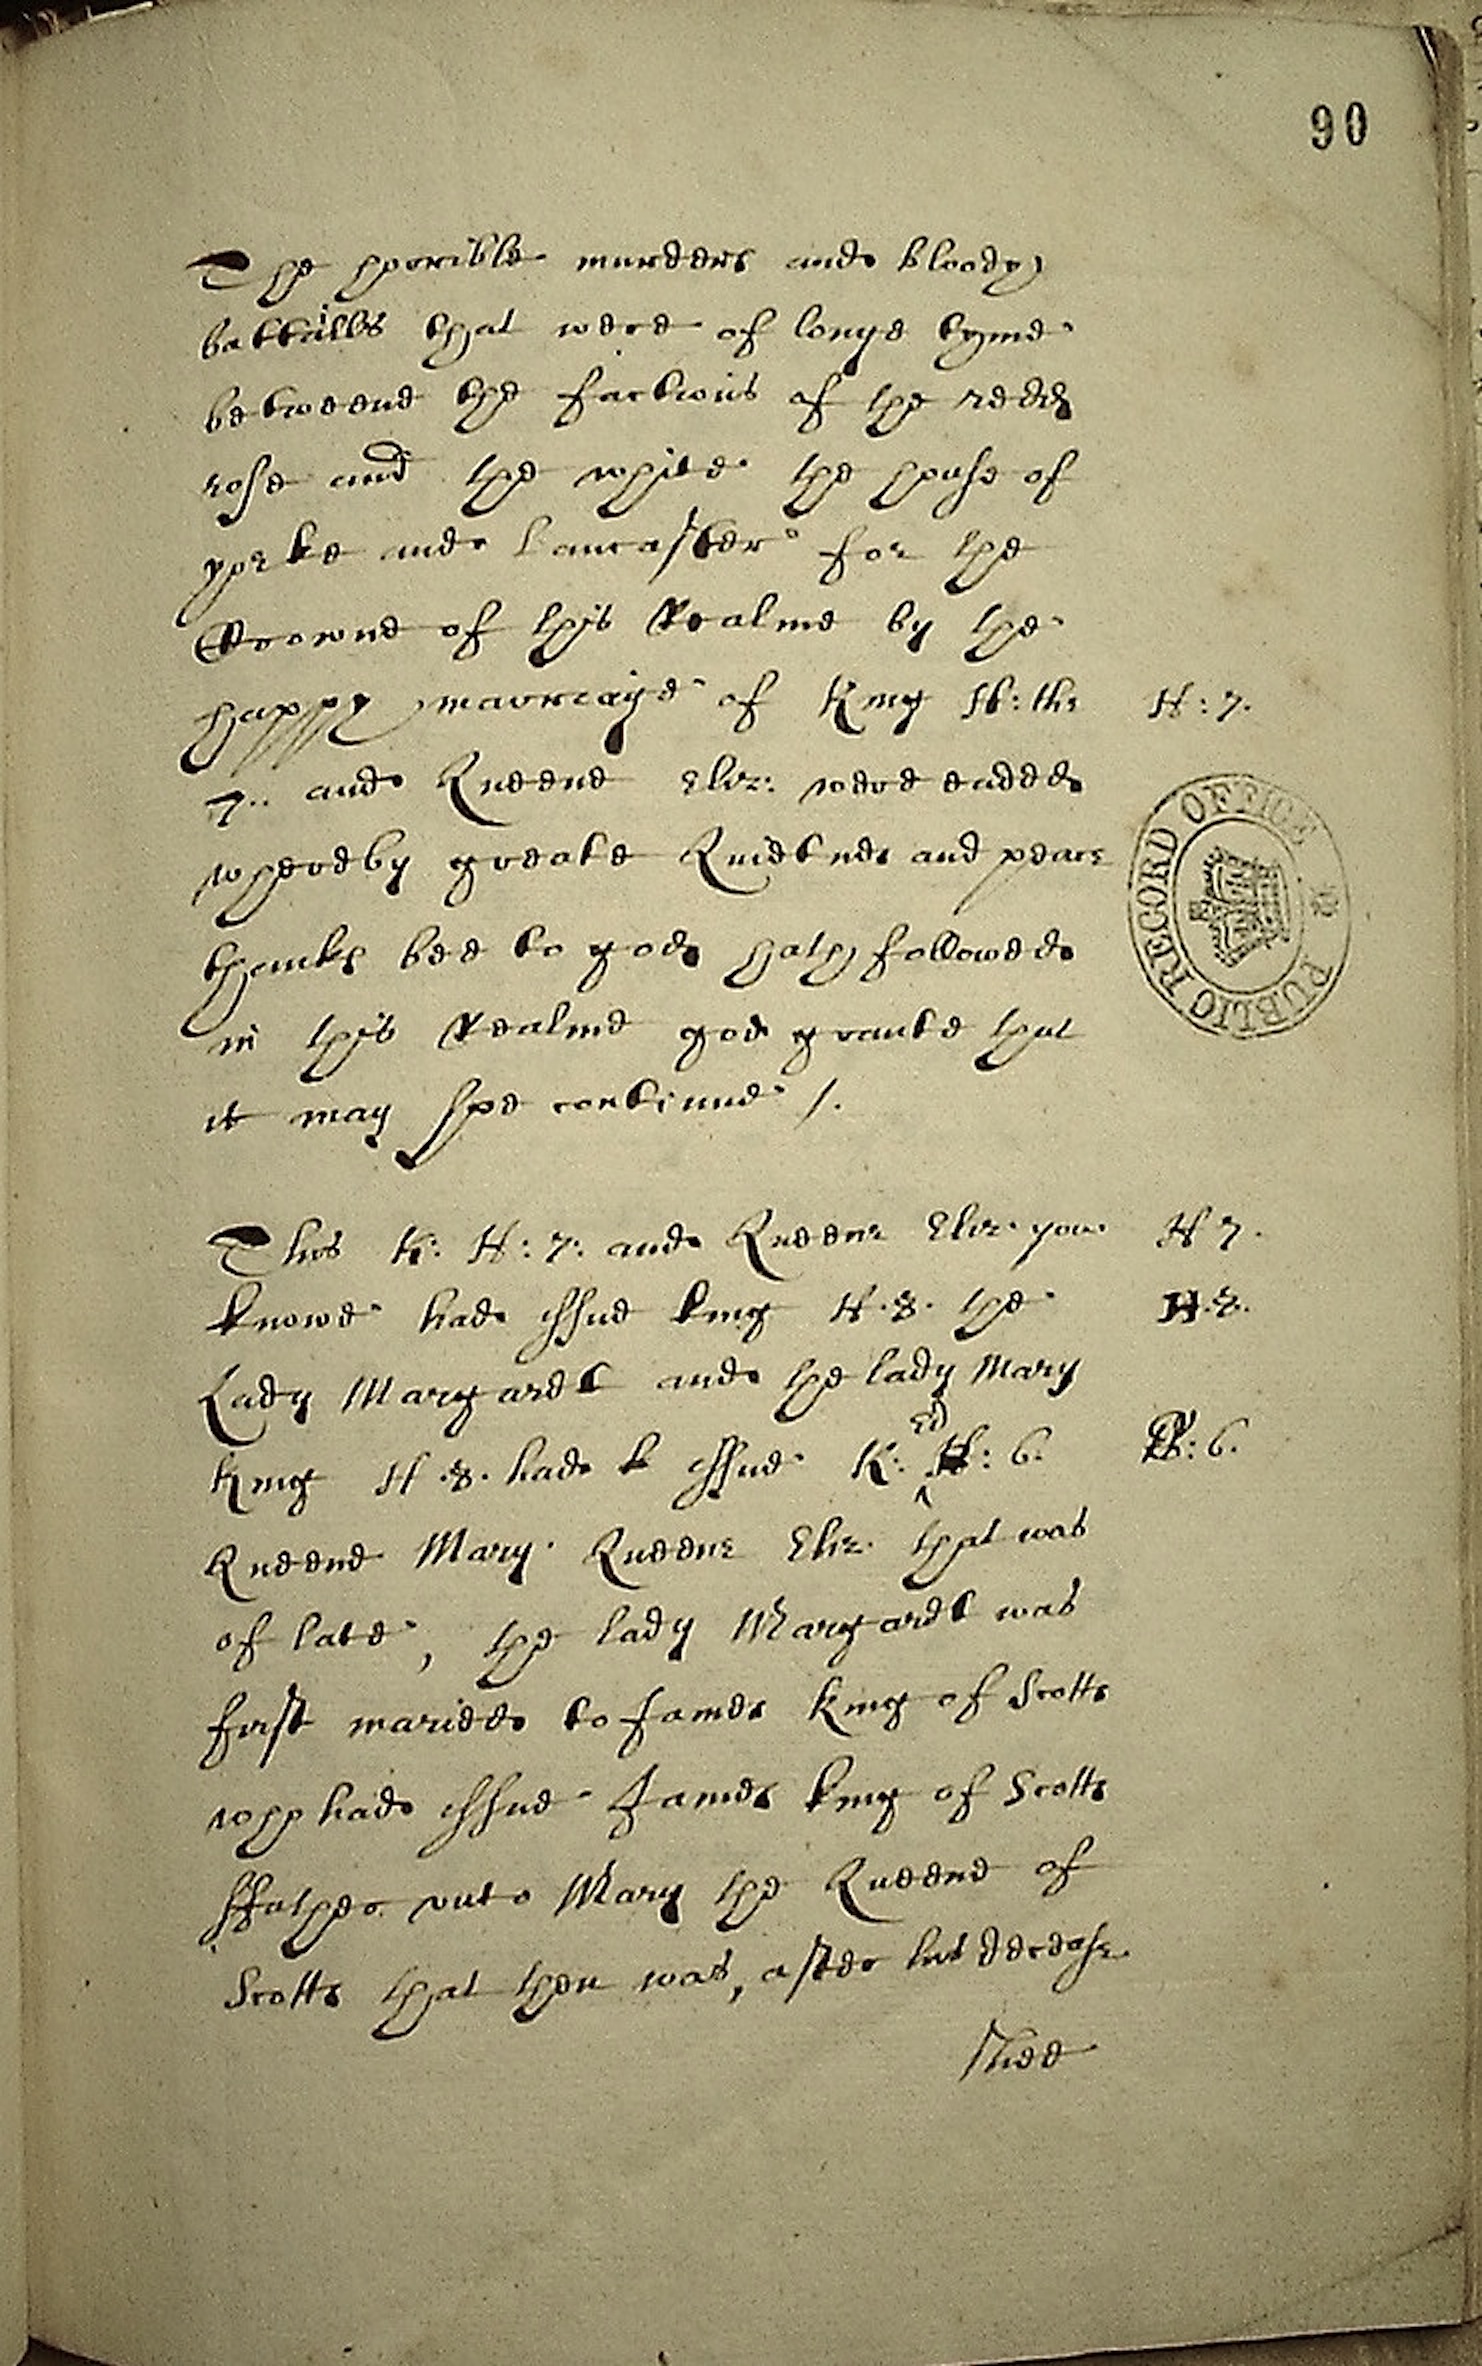 90
The horrible murders and bloody
battailes that were of longe tyme
betweene the factions of the redd
rose and the white the house of
yorke and Lancaster for the
Crowne of this Realme by the
happy marriage of King H: the H: 7.
7.. and Queene Eliz: were ended
whereby greate Quietnes and peace
thankes bee to god hath followed
in this Realme god graunte that
it may soe continue /.
This K: H: 7: and Queene Eliz: you H 7.
knowe had issue king H. 8. the H. 8.
Lady Margarett and the lady Mary
King H. 8. had issue K: Ed: 6. E: 6.
Queene Mary. Queene Eliz. that was
of late, the lady Margarett was
first maried to James King of Scotts
whoe had issue James king of Scotts
ffather unto Mary the Queene of
Scotts that then was, after his decease
shee
PUBLIC RECORD OFFICE